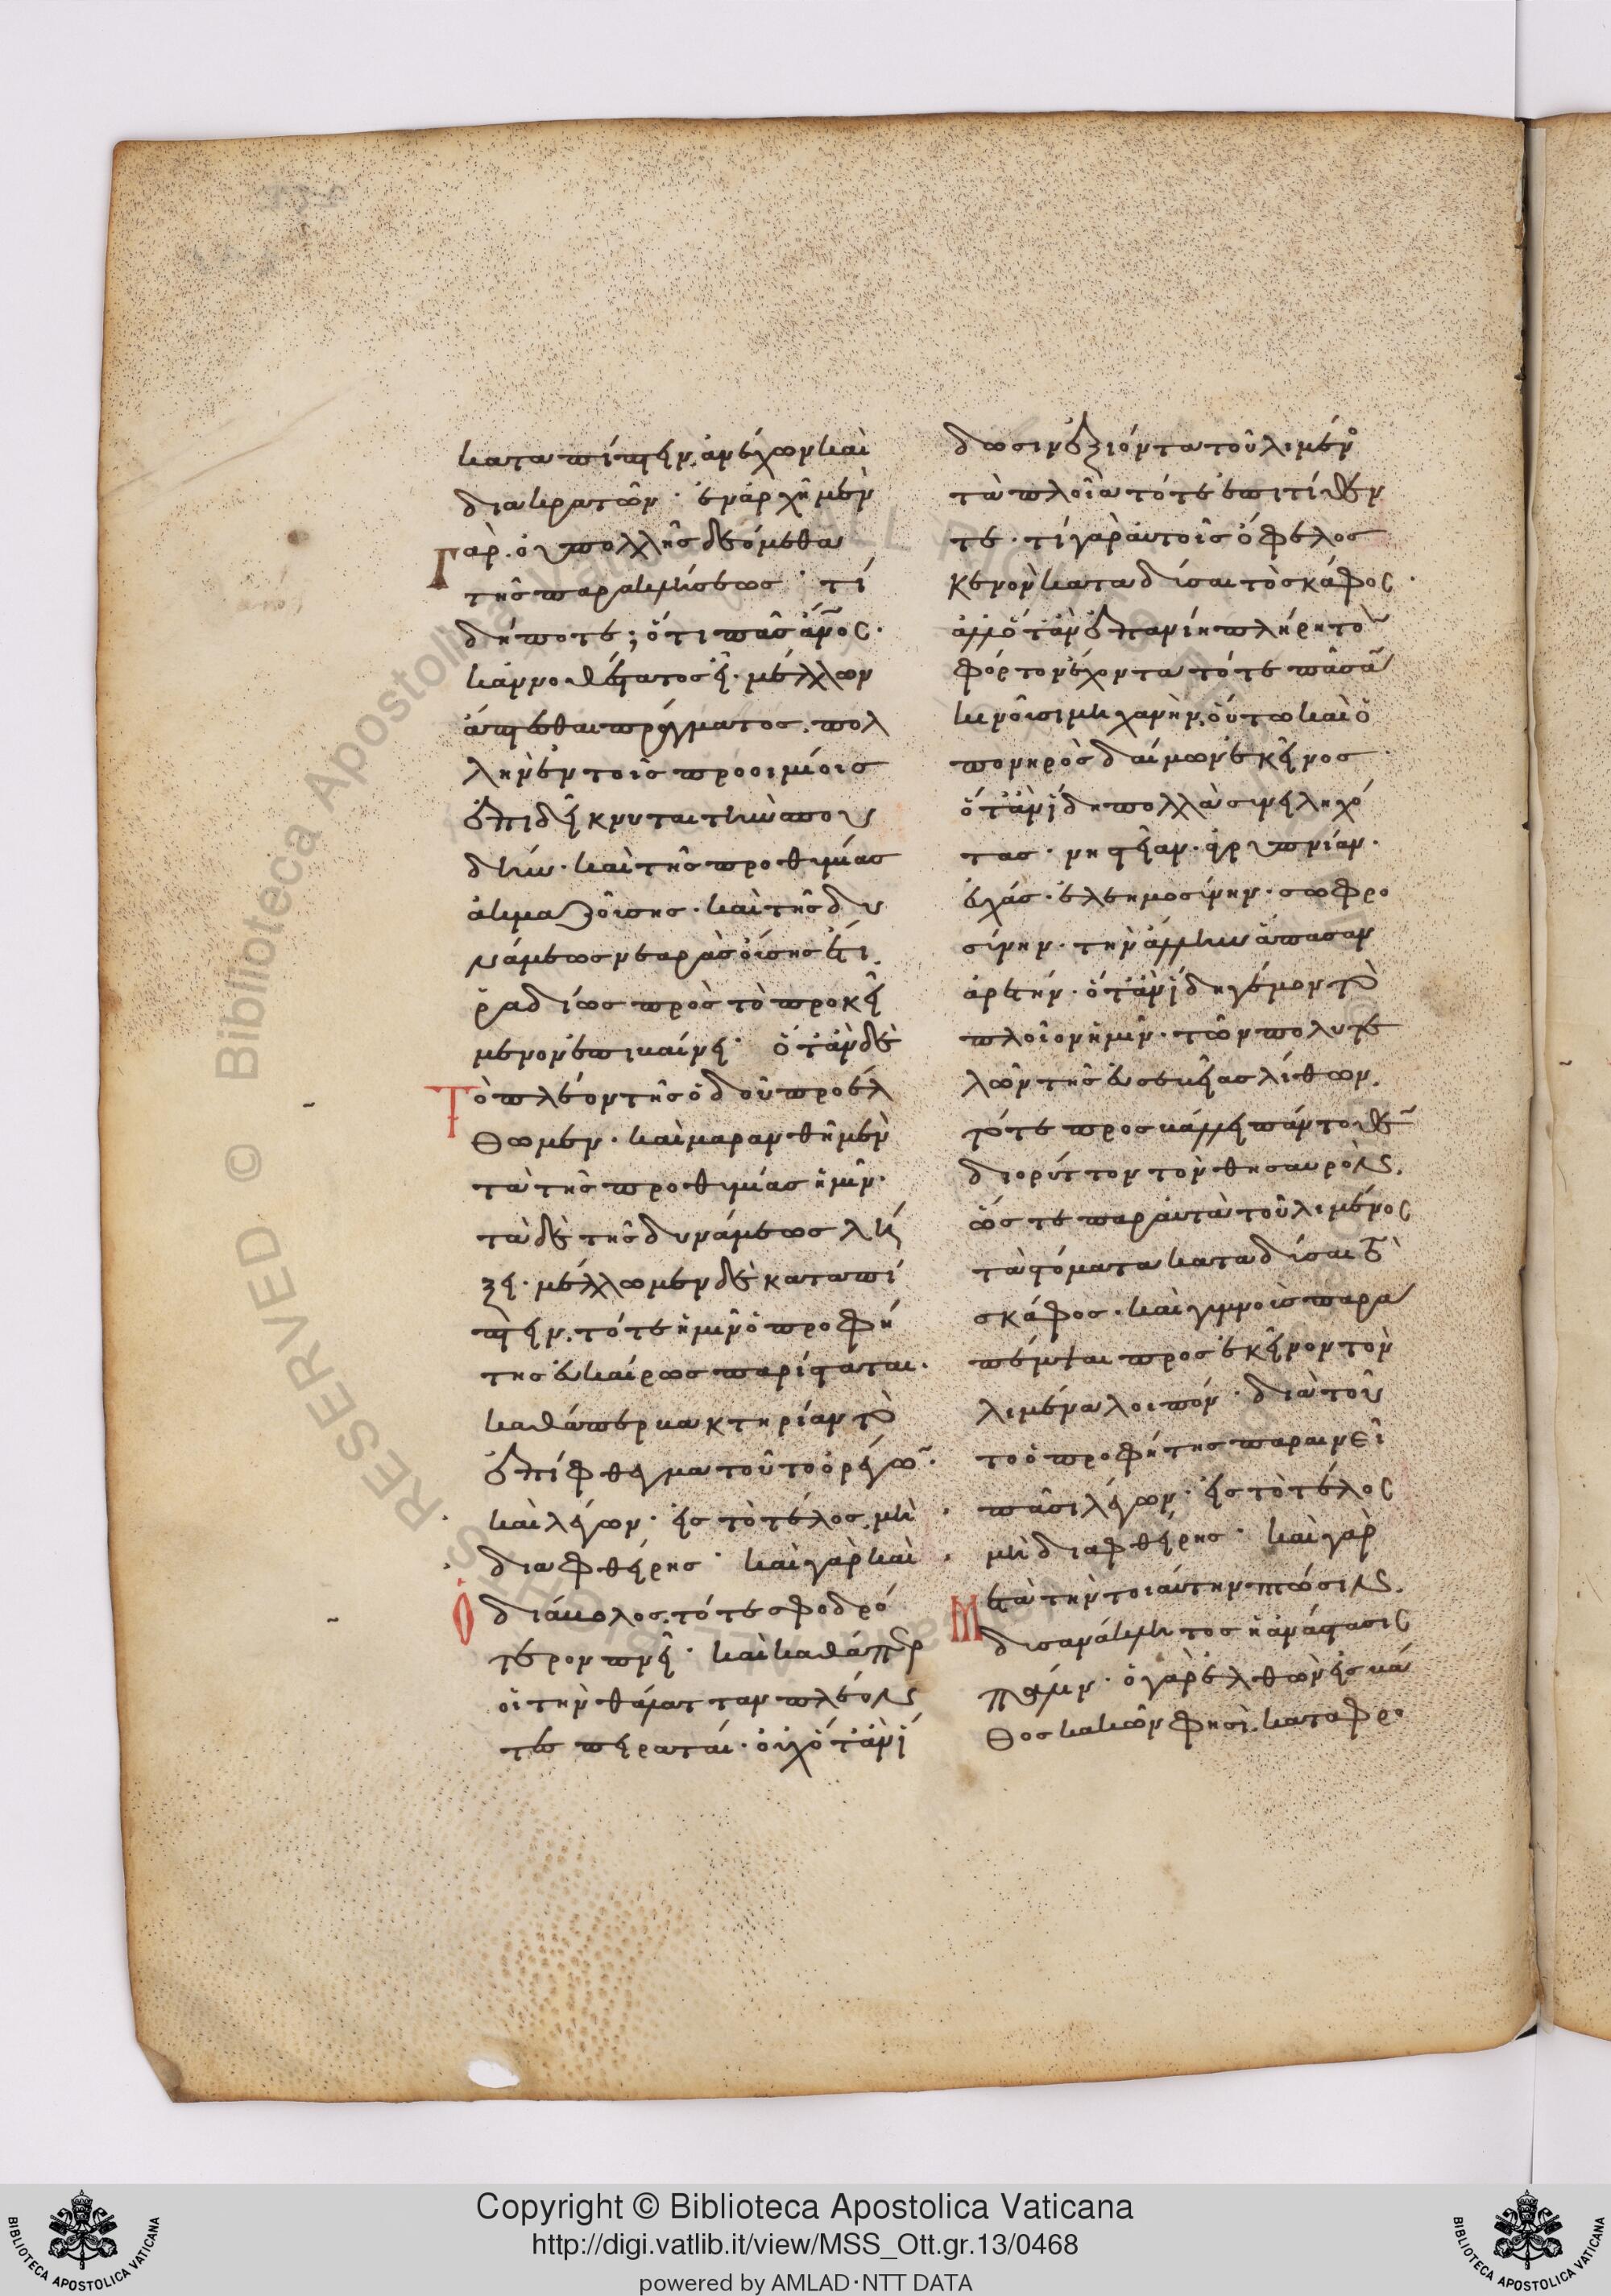 καταπίπτειν ἀνέχων καὶ
διακρατῶν· ἐν ἀρχῆ μὲν
Γὰρ οὐ πολλῆς δεόμεθα
τῆς παρακλήσεως· τί
δήποτε; ὅτι πᾶς ἄνος·
κἂν νοθέστατος εἶ· μέλλων
ἅπτεσθαι πράγματος, πολ
λὴν ἐν τοῖς προοιμίοις
ἐπιδείκνυται τὴν σπου
δὴν· καὶ τῆς προθυμίας
ἀκμαζούσης· καὶ τῆς δυ
νάμεως νεαρᾶς οὔσης ἔτι
ῥαδίως πρὸς τὸ προκεί
μενον ἐπιβαίνει· ὅταν δὲ
Τὸ πλέον τῆς ὁδοῦ προέλ
θωμεν· καὶ μαρανθῆ μὲν
τὰ τῆς προθυμίας ἡμῖν·
τὰ δὲ τῆς δυνάμεως λή
ξει· μέλλωμεν δὲ καταπί
πτειν, τότε ἡμῖν ὁ προφή
της εὐκαίρως παρίσταται·
καθάπερ βακτηρίαν τὸ
ἐπίφθεγμα τοῦτο ὀρέγων·
καὶ λέγων· εἰς τὸ τέλος μὴ
διαφθείρης· καὶ γὰρ καὶ
Ὁ διάβολος, τότε σφοδρό
τερον πνεῖ· καὶ καθάπερ
οἱ τὴν θάλατταν πλέον
τες πειραταὶ· οὐχ ὅταν ἴ
δωσιν ἐξιόντα τοῦ λιμένο
τὰ πλοῖα τότε ἐπιτίθεν
τε· τί γὰρ αὐτοῖς ὄφελος
κενὸν καταδῦσαι τὸ σκάφος·
ἀλλ' ὅταν ἐπανίη πλήρη τὸν
φόρτον ἔχοντα τότε πᾶσαν
κινοῦσι μηχανὴν, οὕτω καὶ ὁ
πονηρὸς δαίμων ἐκεῖνος
ὅταν ἴδη πολλὰ συνειληχό
τας· νηστείαν· ἀγρυπνίαν·
εὐχὰς· ἐλεημοσύνην· σωφρο
σύνην· τὴν ἄλλην ἅπασαν
ἀρετήν· ὅταν ἴδη γέμον τὸ
πλοῖον ἡμῖν· τῶν πολυτε
λῶν τῆς εὐσεβείας λίθων,
τότε προσβάλλει πάντοθεν
διορύττων τὸν θησαυρὸν.
ὥστε παρ' αὐτὰ τοῦ λιμένος
τὰ στόματα καταδῦσαι τὸ
σκάφος· καὶ γυμνοὺς παρα
πέμψαι πρὸς ἐκεῖνον τὸν
λιμένα λοιπόν· διὰ τοῦ
το ὁ προφήτης παραινεῖ
πᾶσι λέγων· εἰς τὸ τέλος
μὴ διαφθείρης· καὶ γὰρ
Μετὰ τὴν τοιαύτην πτῶσιν.
δυσανάκλητος ἡ ἀνάστασις
πάλιν· ὁ γὰρ ἐλθὼν εἰς βά
θος κακῶν φησὶ, καταφρο
Copyright © Biblioteca Apostolica Vaticana
http://digi.vatlib.it/view/MSS_Ott.gr.13/0468
powered by AMLAD·NTT DATA
BIBLIOTECA APOSTOLICA VATICANA
BIBLIOTECA APOSTOLICA VATICANA